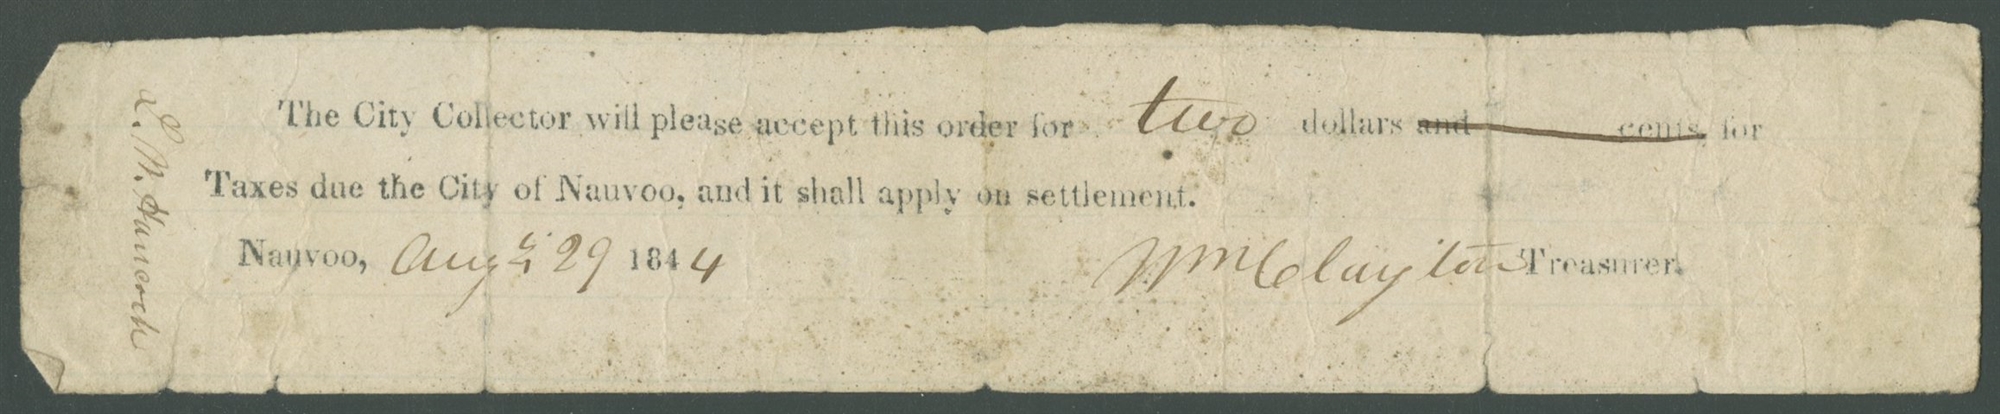 The City Collector will please accept this order for two dollars and cents, for
Taxes due the City of Nauvoo, and it shall apply on settlement.
Nauvoo, Augst 29 1844 Wm Clayton Treasurer.
L. N. Hancock